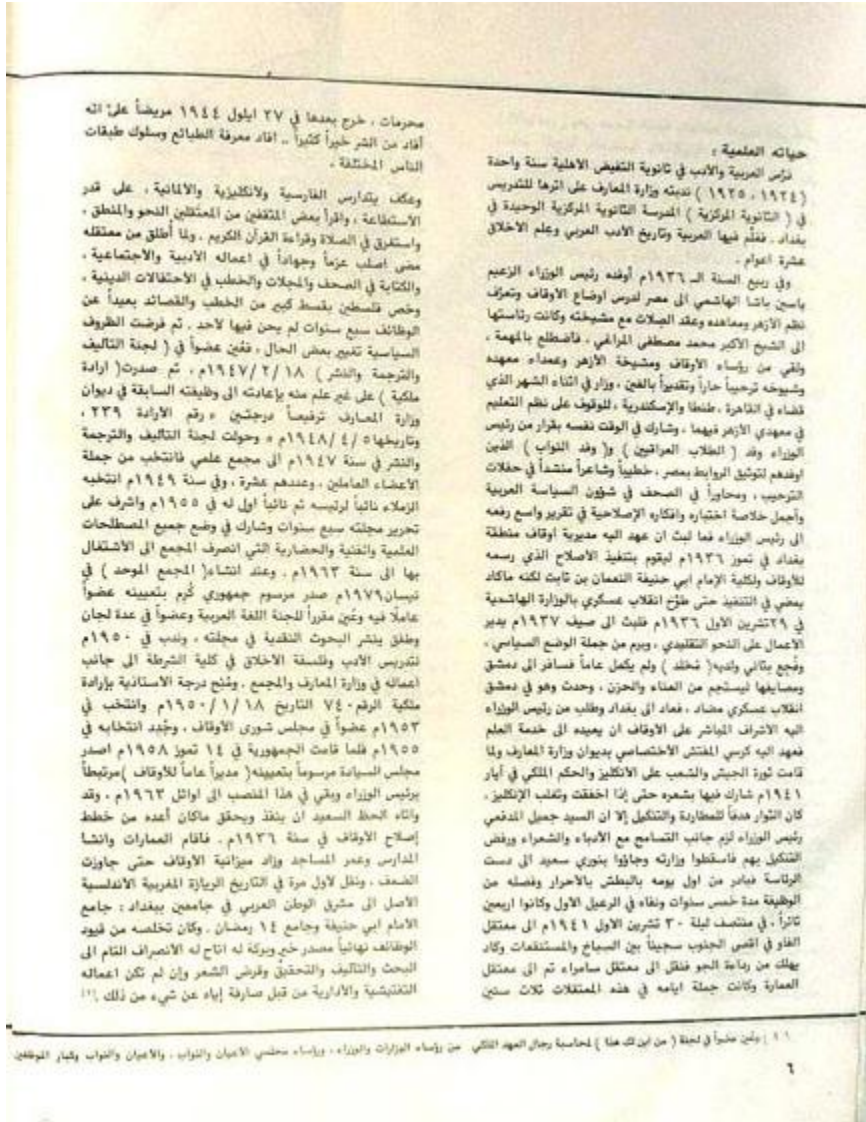 حياته العلمية :
درّس العربية والأدب في ثانوية التفيض الأهلية سنة واحدة
(١٩٢٤ ، ١٩٢٥ ) ندبته وزارة المعارف على اثرها للتدريس
في ( الثانوية المركزية ) المدرسة الثانوية المركزية الوحيدة في
بغداد . فعلّم فيها العربية وتاريخ الأدب العربي وعلم الأخلاق
عشرة اعوام .
وفي ربيع السنة الـ ١٩٣٦م أوفده رئيس الوزراء الزعيم
ياسين باشا الهاشمي الى مصر لدرس اوضاع الأوقاف وتعرّف
نظم الأزهر ومعاهده وعقد الصلات مع مشيخته وكانت رئاستها
الى الشيخ الأكبر محمد مصطفى المراغي ، فاضطلع بالمهمة ،
ولقي من رؤساء الأوقاف ومشيخة الأزهر وعمداء معهده
وشيوخه ترحيباً حاراً وتقديراً بالغين ، وزار في اثناء الشهر الذي
قضاه في القاهرة ، طنطا والإسكندرية ، للوقوف على نظم التعليم
في معهدي الأزهر فيهما ، وشارك في الوقت نفسه بقرار من رئيس
الوزراء وفد ( الطلاب العراقيين ) و( وفد النواب ) الذين
اوفدهم لتوثيق الروابط بمصر ، خطيباً وشاعراً منشداً في حفلات
الترحيب ، ومحاوراً في الصحف في شؤون السياسة العربية
وأجمل خلاصة اختباره وافكاره الإصلاحية في تقرير واسع رفعه
الى رئيس الوزراء فما لبث ان عهد اليه مديرية أوقاف منطقة
بغداد في تموز ١٩٣٦م ليقوم بتنفيذ الأصلاح الذي رسمه
للأوقاف ولكلية الإمام ابي حنيفة النعمان بن ثابت لكنه ماكاد
يمضي في التنفيذ حتى طوّح انقلاب عسكري بالوزارة الهاشمية
في ٢٩تشرين الأول ١٩٣٦م فلبث الى صيف ١٩٣٧م يدير
الأعمال على النحو التقليدي ، وبرم من جملة الوضع السياسي ،
وفُجع بثاني ولديه( مُخلد ) ولم يكمل عاماً فسافر الى دمشق
ومصايفها ليستجم من العناء والحزن ، وحدث وهو في دمشق
انقلاب عسكري مضاد ، فعاد الى بغداد وطلب من رئيس الوزراء
اليه الأشراف المباشر على الأوقاف ان يعيده الى خدمة العلم
فعهد اليه كرسي المفتش الأختصاصي بديوان وزارة المعارف ولما
قامت ثورة الجيش والشعب على الأنكليز والحكم الملكي في أيار
١٩٤١م شارك فيها بشعره حتى إذا اخفقت وتغلب الإنكليز ،
كان الثوار هدفاً للمطاردة والتنكيل إلا ان السيد جميل المدفعي
رئيس الوزراء لزم جانب التسامح مع الأدباء والشعراء ورفض
التنكيل بهم فاسقطوا وزارته وجاؤوا بنوري سعيد الى دست
الرئاسة فبادر من اول يومه بالبطش بالأحرار وفصله من
الوظيفة مدة خمس سنوات ونفاه في الرعيل الأول وكانوا اربعين
ثائراً ، في منتصف ليلة ٣٠ تشرين الأول ١٩٤١م الى معتقل
الفاو في اقصى الجنوب سجيناً بين السباخ والمستنقعات وكاد
يهلك من رداءة الجو فنقل الى معتقل سامراء ثم الى معتقل
العمارة وكانت جملة ايامه في هذه المعتقلات ثلاث سنين
محرمات ، خرج بعدها في ٢٧ ايلول ١٩٤٤ مريضاً على انه
أفاد من الشر خيراً كثيراً .. افاد معرفة الطبائع وسلوك طبقات
الناس المختلفة .
وعكف يتدارس الفارسية ولانكليزية والألمانية ، على قدر
الأستطاعة ، واقرأ بعض المثقفين من المعتقلين النحو والمنطق ،
واستغرق في الصلاة وقراءة القرآن الكريم . ولما أُطلق من معتقله
مضى اصلب عزماً وجهاداً في اعماله الأدبية والأجتماعية ،
والكتابة في الصحف والمجلات والخطب في الأحتفالات الدينية ،
وخص فلسطين بقسط كبير من الخطب والقصائد بعيداً عن
الوظائف سبع سنوات لم يحن فيها لأحد . ثم فرضت الظروف
السياسية تغيير بعض الحال ، فعُين عضواً في ( لجنة التأليف
والترجمة والنشر ) ١٩٤٧/٢/١٨م ، ثم صدرت( ارادة
ملكية ) على غير علم منه بإعادته الى وظيفته السابقة في ديوان
وزارة المعارف ترفيعاً درجتين « رقم الأرادة ٢٣٩ ،
وتاريخها ١٩٤٨/٤/٥م » وحولت لجنة التأليف والترجمة
والنشر في سنة ١٩٤٧م الى مجمع علمي فانتخب من جملة
الأعضاء العاملين ، وعددهم عشرة ، وفي سنة ١٩٤٩م انتخبه
الزملاء نائباً لرئيسه ثم نائباً اول له في ١٩٥٥م واشرف على
تحرير مجلته سبع سنوات وشارك في وضع جميع المصطلحات
العلمية والفنية والحضارية التي انصرف المجمع الى الأشتغال
بها الى سنة ١٩٦٣م . وعند انشاء( المجمع الموحد ) في
نيسان١٩٧٩م صدر مرسوم جمهوري كُرم بتعيينه عضواً
عاملًا فيه وعُين مقرراً للجنة اللغة العربية وعضواً في عدة لجان
وطفق ينشر البحوث النقدية في مجلته ، وندب في ١٩٥٠م
لتدريس الأدب وفلسفة الأخلاق في كلية الشرطة الى جانب
اعماله في وزارة المعارف والمجمع . ومُنح درجة الأستاذية بإرادة
ملكية الرقم ٧٤٠ التاريخ ١٩٥٠/١/١٨م وانتخب في
١٩٥٣م عضواً في مجلس شورى الأوقاف ، وجُدد انتخابه في
١٩٥٥م فلما قامت الجمهورية في ١٤ تموز ١٩٥٨م اصدر
مجلس السيادة مرسوماً بتعيينه( مديراً عاماً للأوقاف )مرتبطاً
برئيس الوزراء وبقي في هذا المنصب الى اوائل ١٩٦٣م . وقد
واتاه الحظ السعيد ان ينفذ ويحقق ماكان أعده من خطط
إصلاح الأوقاف في سنة ١٩٣٦م . فأقام العمارات وانشأ
المدارس وعمر المساجد وزاد ميزانية الأوقاف حتى جاوزت
الضعف ، ونقل لأول مرة في التاريخ الريازة المغربية الأندلسية
الأصل الى مشرق الوطن العربي في جامعين ببغداد : جامع
الأمام ابي حنيفة وجامع ١٤ رمضان . وكان تخلصه من قيود
الوظائف نهائياً مصدر خير وبركة له اتاح له الأنصراف التام الى
البحث والتأليف والتحقيق وقرض الشعر وإن لم تكن اعماله
التفتيشية والأدارية من قبل صارفة إياه عن شيء من ذلك (١)
( ١ ) وعُين عضواً في لجنة ( من اين لك هذا ) لمحاسبة رجال العهد الملكي من رؤساء الوزارات والوزراء ، ورؤساء مجلسي الأعيان والنواب ، والأعيان والنواب وكبار الموظفين
٦